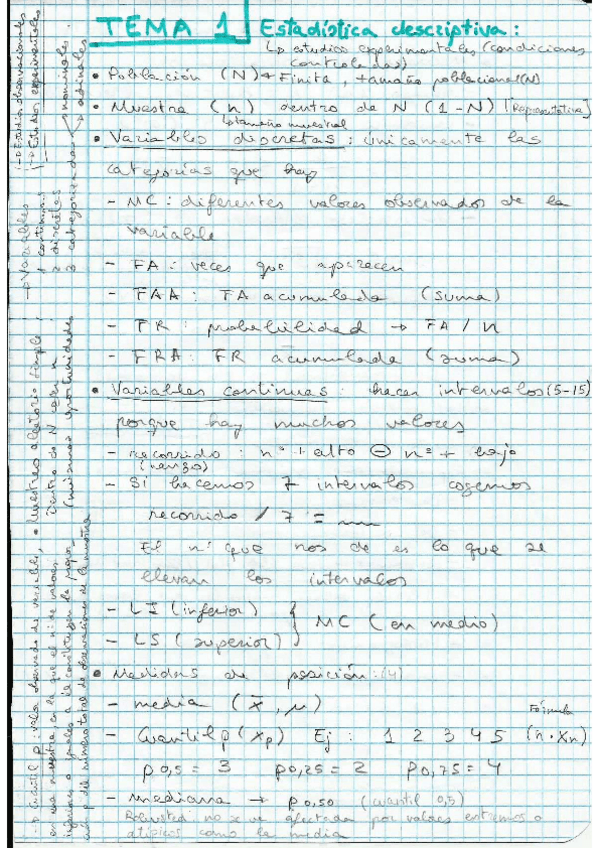 TEMA 1 Estadística descriptiva:
↳ estudios experimentales (condiciones
controladas)
• Población (N) → Finita, tamaño poblacional (N)
• Muestra (n) dentro de N (1-N) [Representativa]
↳ tamaño muestral
• Variables discretas: únicamente las
categorías que hay
- MC: diferentes valores observados de la
variable
- FA: veces que aparecen
- FAA: FA acumulada (suma)
- FR: probabilidad → FA / n
- FRA: FR acumulada (suma)
• Variables continuas: hacer intervalos (5-15)
porque hay muchos valores
- recorrido: nº + alto ⊖ nº + bajo
(rango)
- Si hacemos 7 intervalos cogemos
recorrido / 7 =
El nº que nos de es lo que se
llevan los intervalos
- LI (inferior)
- LS (superior)
MC (en medio)
• Medidas de posición: (4)
- media (x̄, μ)
- Cuantil p (Xp) Ej: 1 2 3 4 5 (n·Xn)
Fórmula
p0,5 = 3 p0,25 = 2 p0,75 = 4
- mediana → p0,50 (cuantil 0,5)
Robusted no se ve afectada por valores extremos o
atípicos como la media
→ Estudios observacionales
→ Estudios experimentales
→ Variables
1 continuas
2 discretas
3 categorizadas
nominales
ordinales
• Muestreo aleatorio simple:
Dentro de N cada n
(mismas oportunidades
→ Cuantil p: valor observado de variable,
en una muestra, en la que el nº de valores
inferiores o iguales a él constituyen la
ción p del número total de observaciones de la muestra